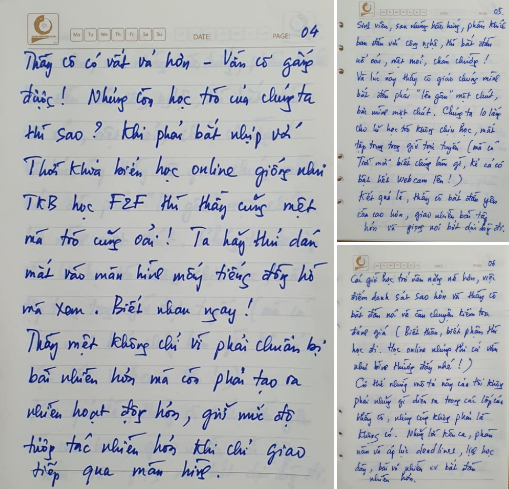 Mo Tu We Th Fr Sa Su DATE: PAGE: 04
Thầy cô có vất vả hơn – Vẫn cố gắng
được! Nhưng còn học trò của chúng ta
thì sao? Khi phải bắt nhịp với
Thời khoá biểu học online giống như
TKB học F2F thì thầy cũng mệt
mà trò cũng oải! Ta hãy thử dán
mắt vào màn hình mấy tiếng đồng hồ
mà xem. Biết nhau ngay!
Thầy mệt không chỉ vì phải chuẩn bị
bài nhiều hơn mà còn phải tạo ra
nhiều hoạt động hơn, giữ mức độ
tương tác nhiều hơn khi chỉ giao
tiếp qua màn hình.
05
Sinh viên, sau những hào hứng, phấn khích
ban đầu với công nghệ, thì bắt đầu
uể oải, mệt mỏi, chán chường!
Và lúc này thầy cô giáo chúng mình
bắt đầu phải "lên gân" một chút,
bài mình một chút. Chúng ta lo lắng
cho là học trò không chịu học, mất
tập trung trong giờ trực tuyến (mà có
Trời mới biết chúng làm gì, kể cả có
bật hết Webcam lên!)
Kết quả là, thầy cô bắt đầu yêu
cầu cao hơn, giao nhiều bài tập
hơn và giọng nói bắt đầu
06
Các giờ học trở nên nặng nề hơn, việc
điểm danh sát sao hơn và thầy cô
bắt đầu nói về câu chuyện kiểm tra
đánh giá (Biết thân, biết phận thì
học đi. Học online nhưng thi cử vẫn
như bình thường đấy nhé!)
Có thể những mô tả này của tôi không
phải những gì diễn ra trong các lớp của
thầy cô, nhưng cũng không phải là
không có. Những lời kêu ca, phàn
nàn về áp lực deadlines, lịch học
dày, bài vở nhiều bắt đầu
nhiều hơn.